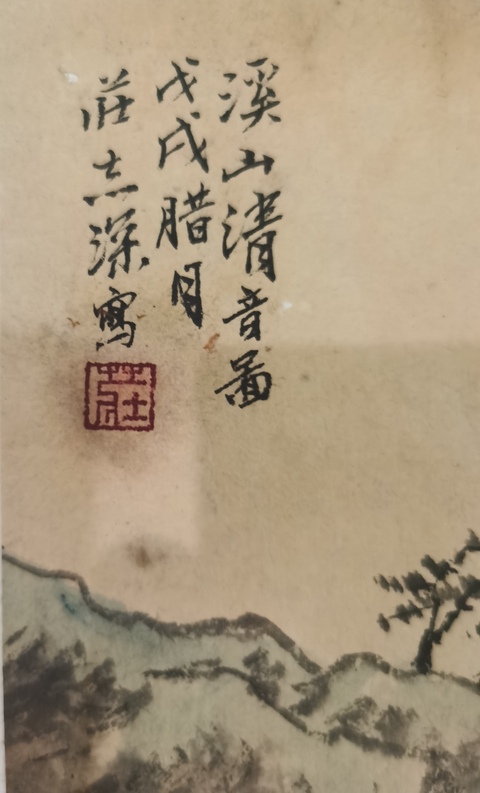 溪山清音圖
戊戌腊月
莊志深寫
莊